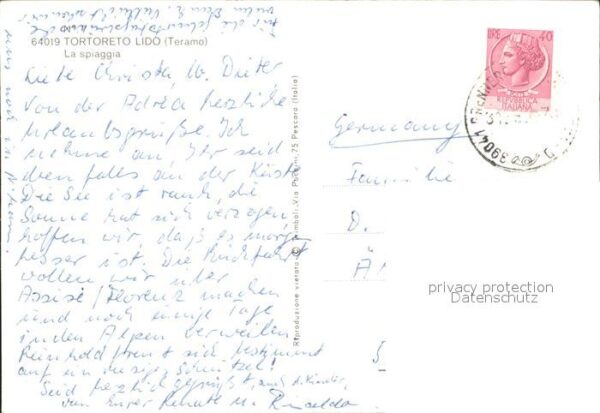 für die
vielen Dank. Vielleicht sehen wir
uns noch in
64019 TORTORETO LIDO (Teramo)
La spiaggia
Liebe Christa, u. Dieter
Von der Adria herzliche
Urlaubsgrüße. Ich
nehme an, Ihr seid
eben falls an der Küste
Die See ist rauh, die
Sonne hat sich verzogen,
hoffen wir, daß es morgen
besser ist. Die Rückfahrt
wollen wir über
Assisi / Florenz machen
und noch einige Tage
in den Alpen verweilen
Reinhold freut sich bestimmt
auf ein riesiges Schnitzel!
Seid herzlich gegrüßt, auch d. Kinder,
von Eurer Renate u. Rinaldo
Riproduzione vietata
Via Pa
75 Pescara (Italia)
LIRE 40
REPVBBLICA
ITALIANA
39041
Germany
Familie
D.
privacy protection
Datenschutz